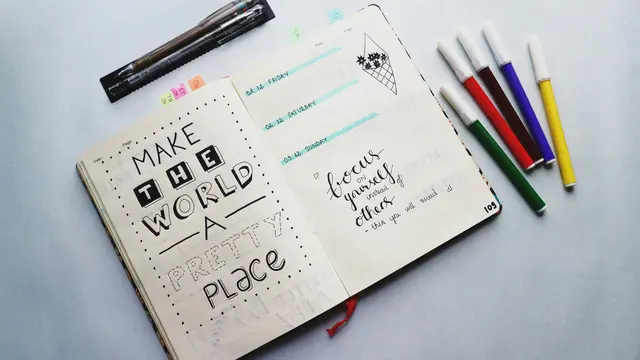 MAKE
THE
WORLD
A
PRETTY
PLACE
01.12 FRIDAY
02.12 SATURDAY
03.12 SUNDAY
focus
on
yourself
instead of
others
- then you will